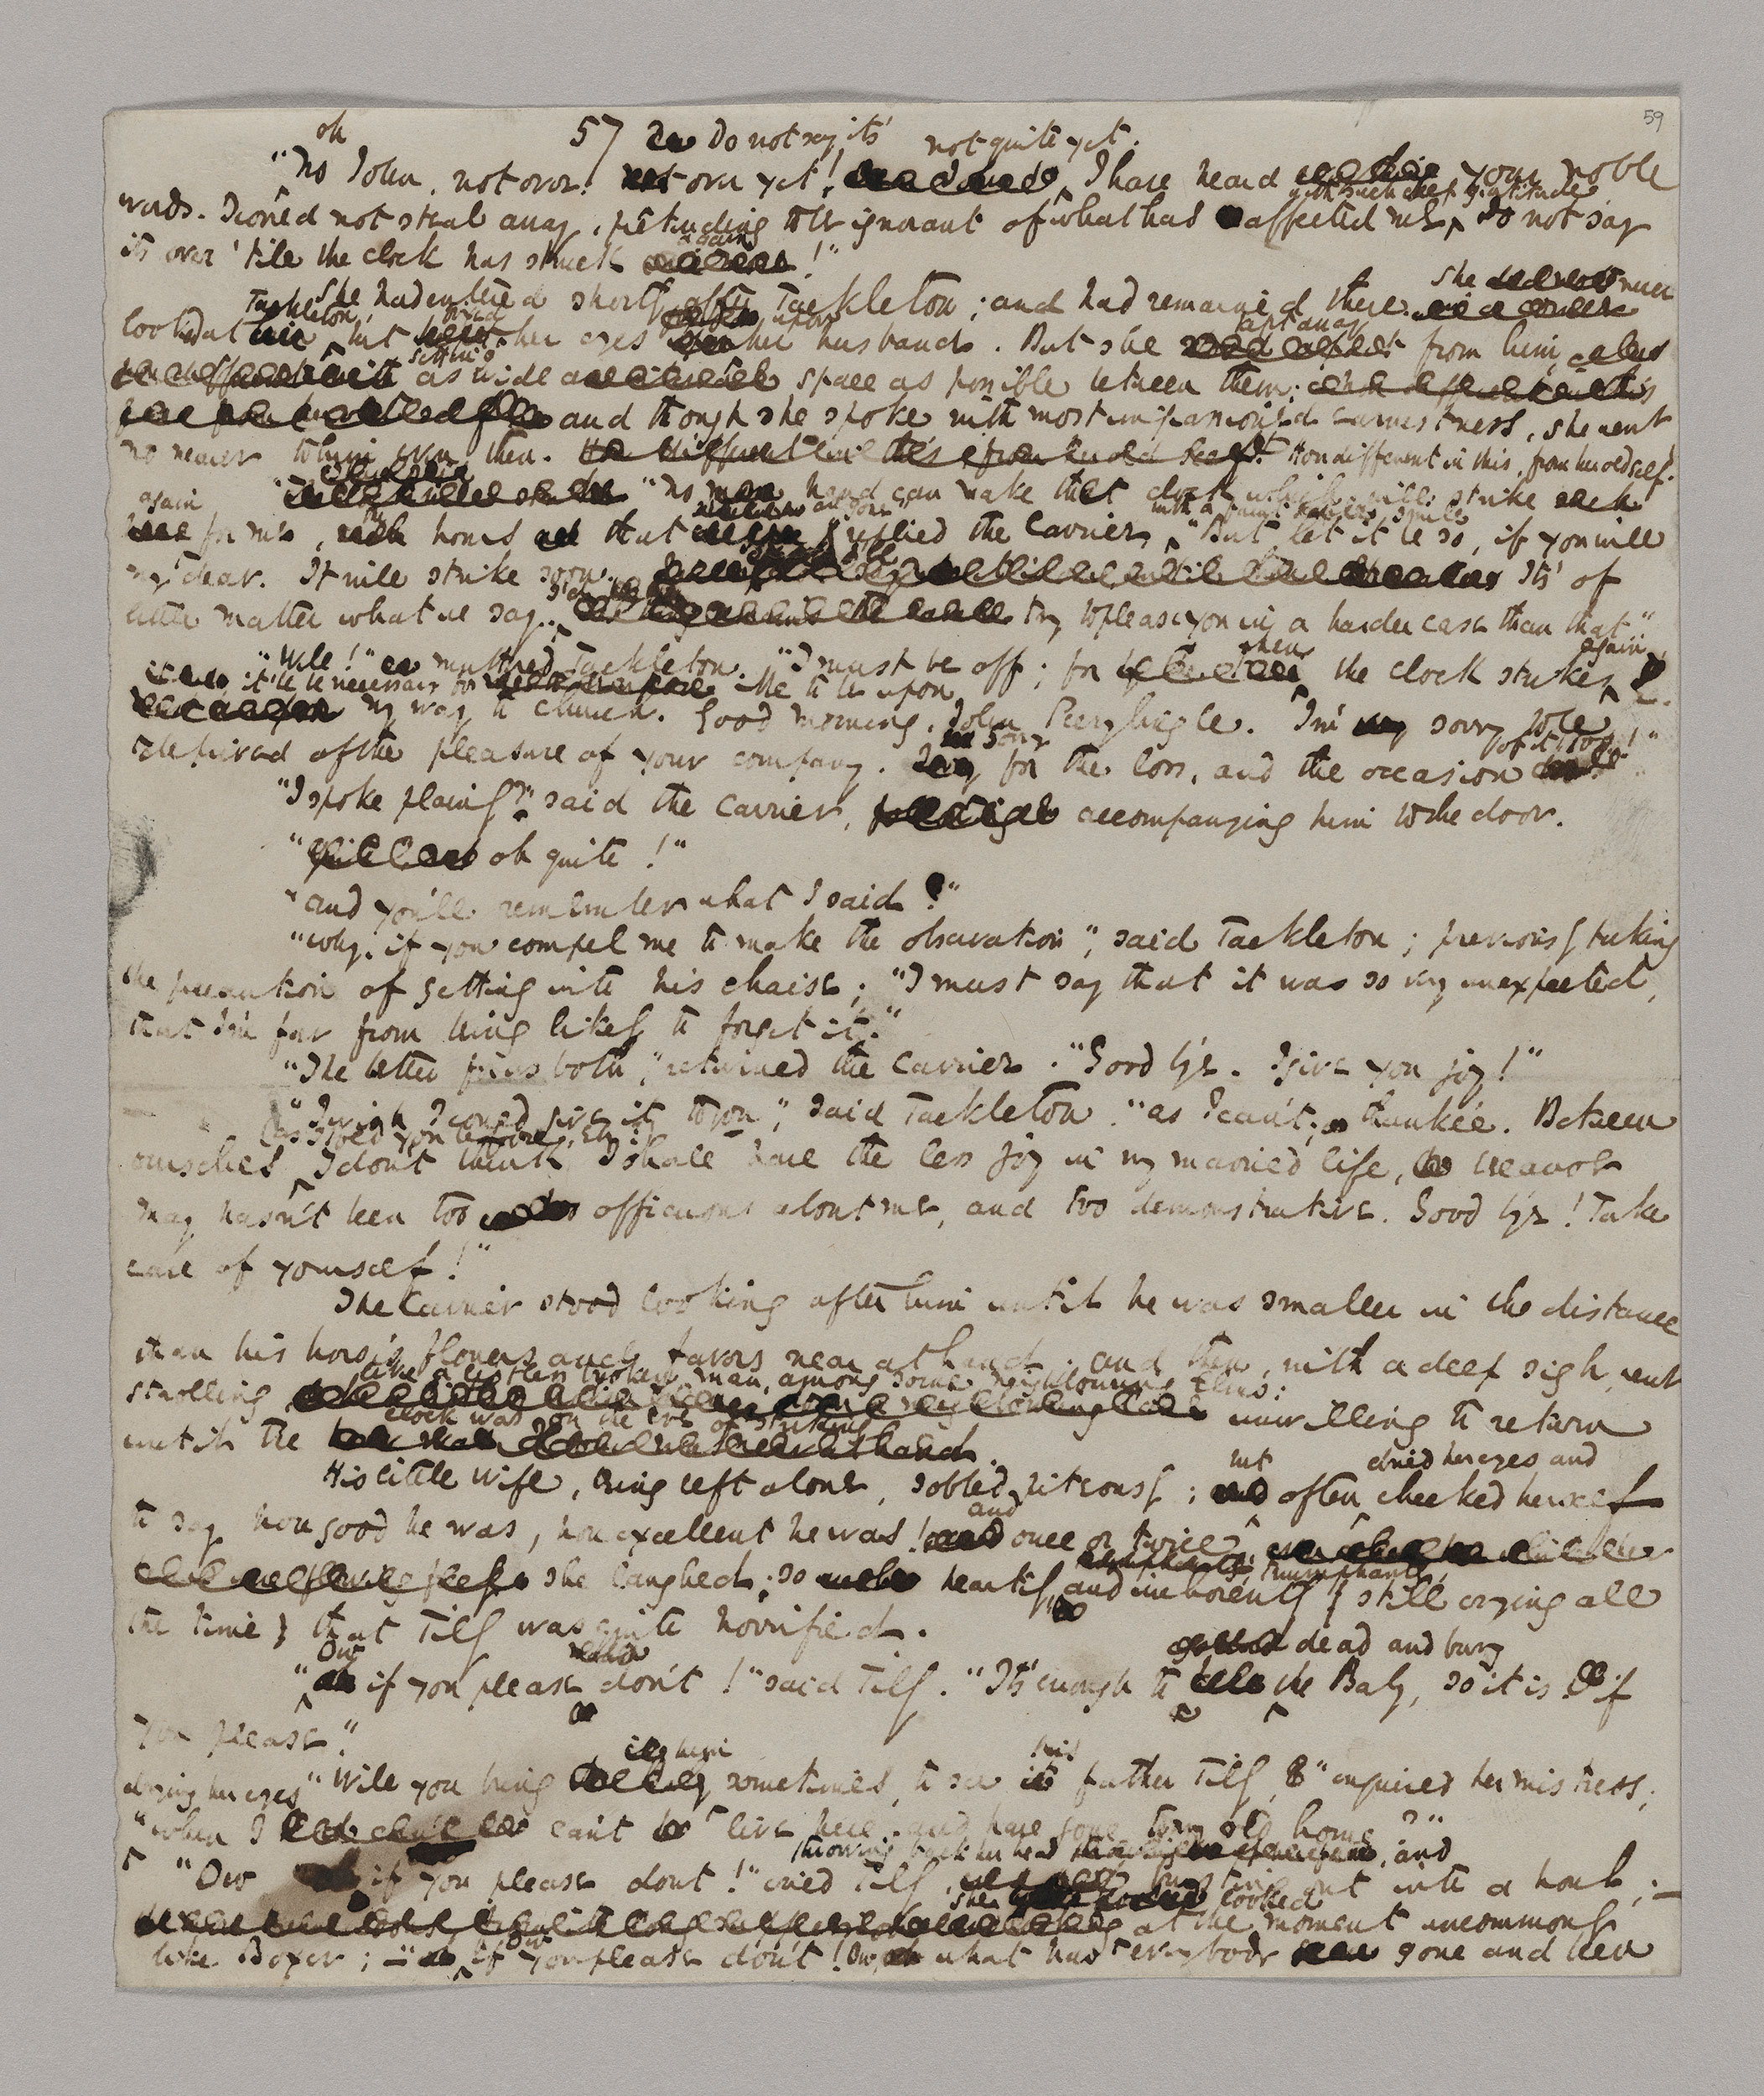 59
57
oh Do not say it's not quite yet.
"No John, not over. not over yet! I have heard your noble
words. I could not steal away, pretending to be ignorant of what has affected me with such deep gratitude. Do not say
it's over 'till the clock has struck again!"
She had entered shortly after Tackleton; and had remained there. She never
looked at Tackleton, but fixed her eyes upon her husband. But she kept away from him,
setting as wide a space as possible between them;
and though she spoke with most impassioned earnestness, she went
no nearer to him even then. How different in this, from her old self.
"No hand can make the clock which will strike
again for me, the hours that are gone" replied the Carrier, with a faint smile. "But let it be so, if you will
my dear. It will strike soon. It's of
little matter what we say. I'd try to please you in a harder case than that."
"Well!" muttered Tackleton. "I must be off; for when the clock strikes again,
it'll be necessary for me to be upon
my way to church. Good morning, John Peerybingle. I'm sorry to be
deprived of the pleasure of your company. Sorry for the loss, and the occasion of it, too!"
"I spoke plainly?" said the Carrier, accompanying him to the door.
"oh quite!"
"and you'll remember what I said?"
"Why, if you compel me to make the observation", said Tackleton; previously taking
the precaution of getting into his chaise; "I must say that it was so very unexpected,
that I'm far from being likely to forget it."
"The better for us both," returned the Carrier. "Good bye. I give you joy!"
"I wish I could give it to you," said Tackleton. "as I can't; thank'ee. Between
ourselves, (as I told you before, Eh?) I don't think I shall have the less joy in my married life, because
May hasn't been too officious about me, and too demonstrative. Good bye! Take
care of yourself!"
The Carrier stood looking after him until he was smaller in the distance
than his horse's flowers and favors near at hand; and then, with a deep sigh, went
strolling like a restless broken man, among some neighbouring elms; unwilling to return
until the clock was on the eve of striking.
His little wife, being left alone, sobbed piteously; but often dried her eyes and checked herself
to say how good he was, how excellent he was! and once or twice
she laughed; so heartily, triumphantly, and incoherently (still crying all
the time) that Tilly was quite horrified.
"Ow if you please don't!" said Tilly. "It's enough to dead and bury the Baby, so it is if
you please."
"Will you bring him sometimes, to see his father Tilly," enquired her mistress; drying her eyes
"when I can't live here, and have gone to my old home?"
"Ow if you please don't!" cried Tilly, throwing back her head, and bursting out into a howl;—
she looked at the moment uncommonly
like Boxer; — "Ow if you please don't! Ow, what has everybody gone and been